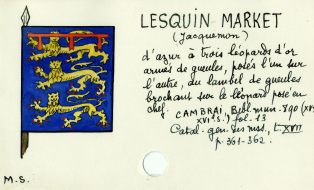 LESQUIN MARKET
(Jacquemon)
d'azur à trois léopards d'or
armés de gueules, posés l'un sur
l'autre, au lambel de gueules
brochant sur le léopard posé en
chef.
CAMBRAI, Bibl. mun. 790 (XV
XVIe s.) fol. 13
Catal. gen. des mss, t. XVII
p. 361-362.
M.S.